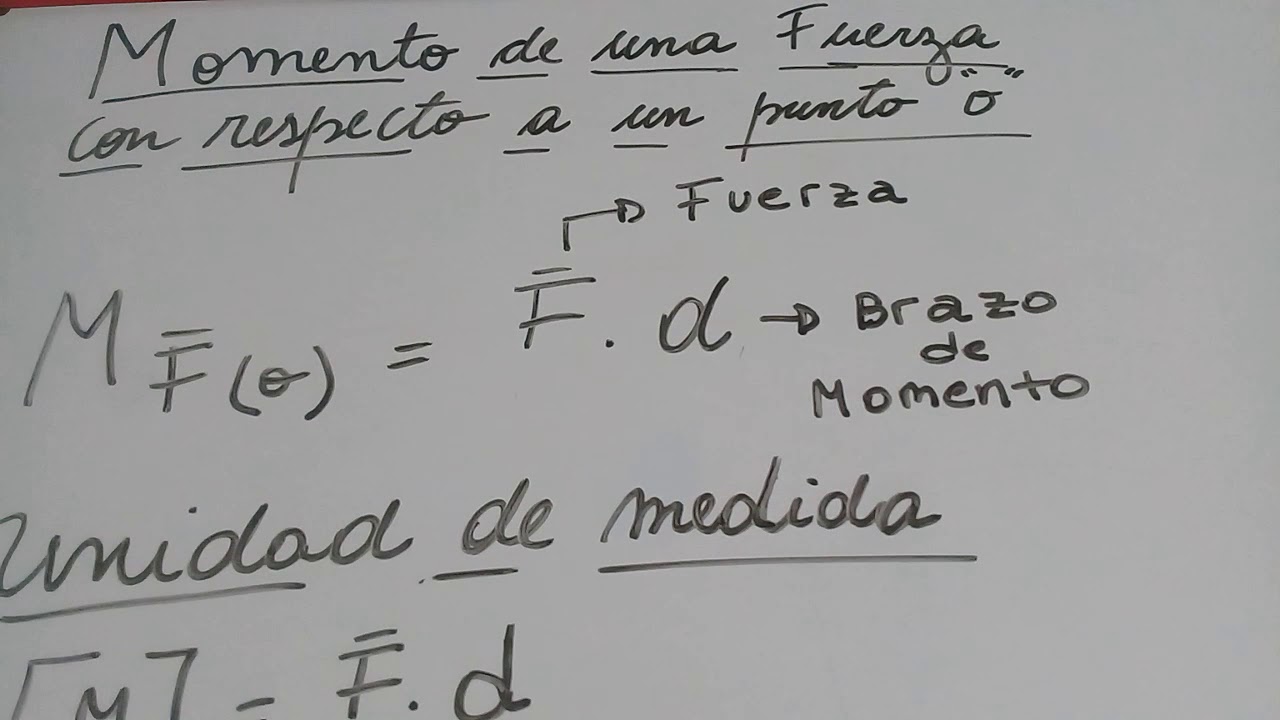 Momento de una Fuerza
con respecto a un punto "o"
Fuerza
M F̄(o) = F̄ . d → Brazo
de
Momento
Unidad de medida
[M] = F̄ . d